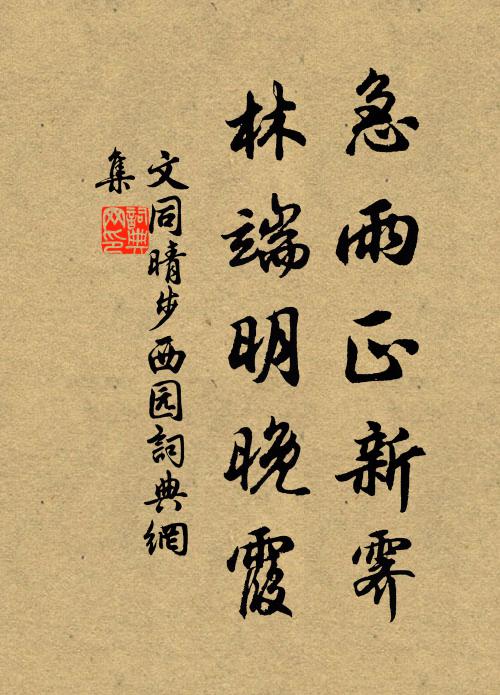 急雨正新霽
林端明晚霞
文同晴步西园詞典網
集
詞典
网印